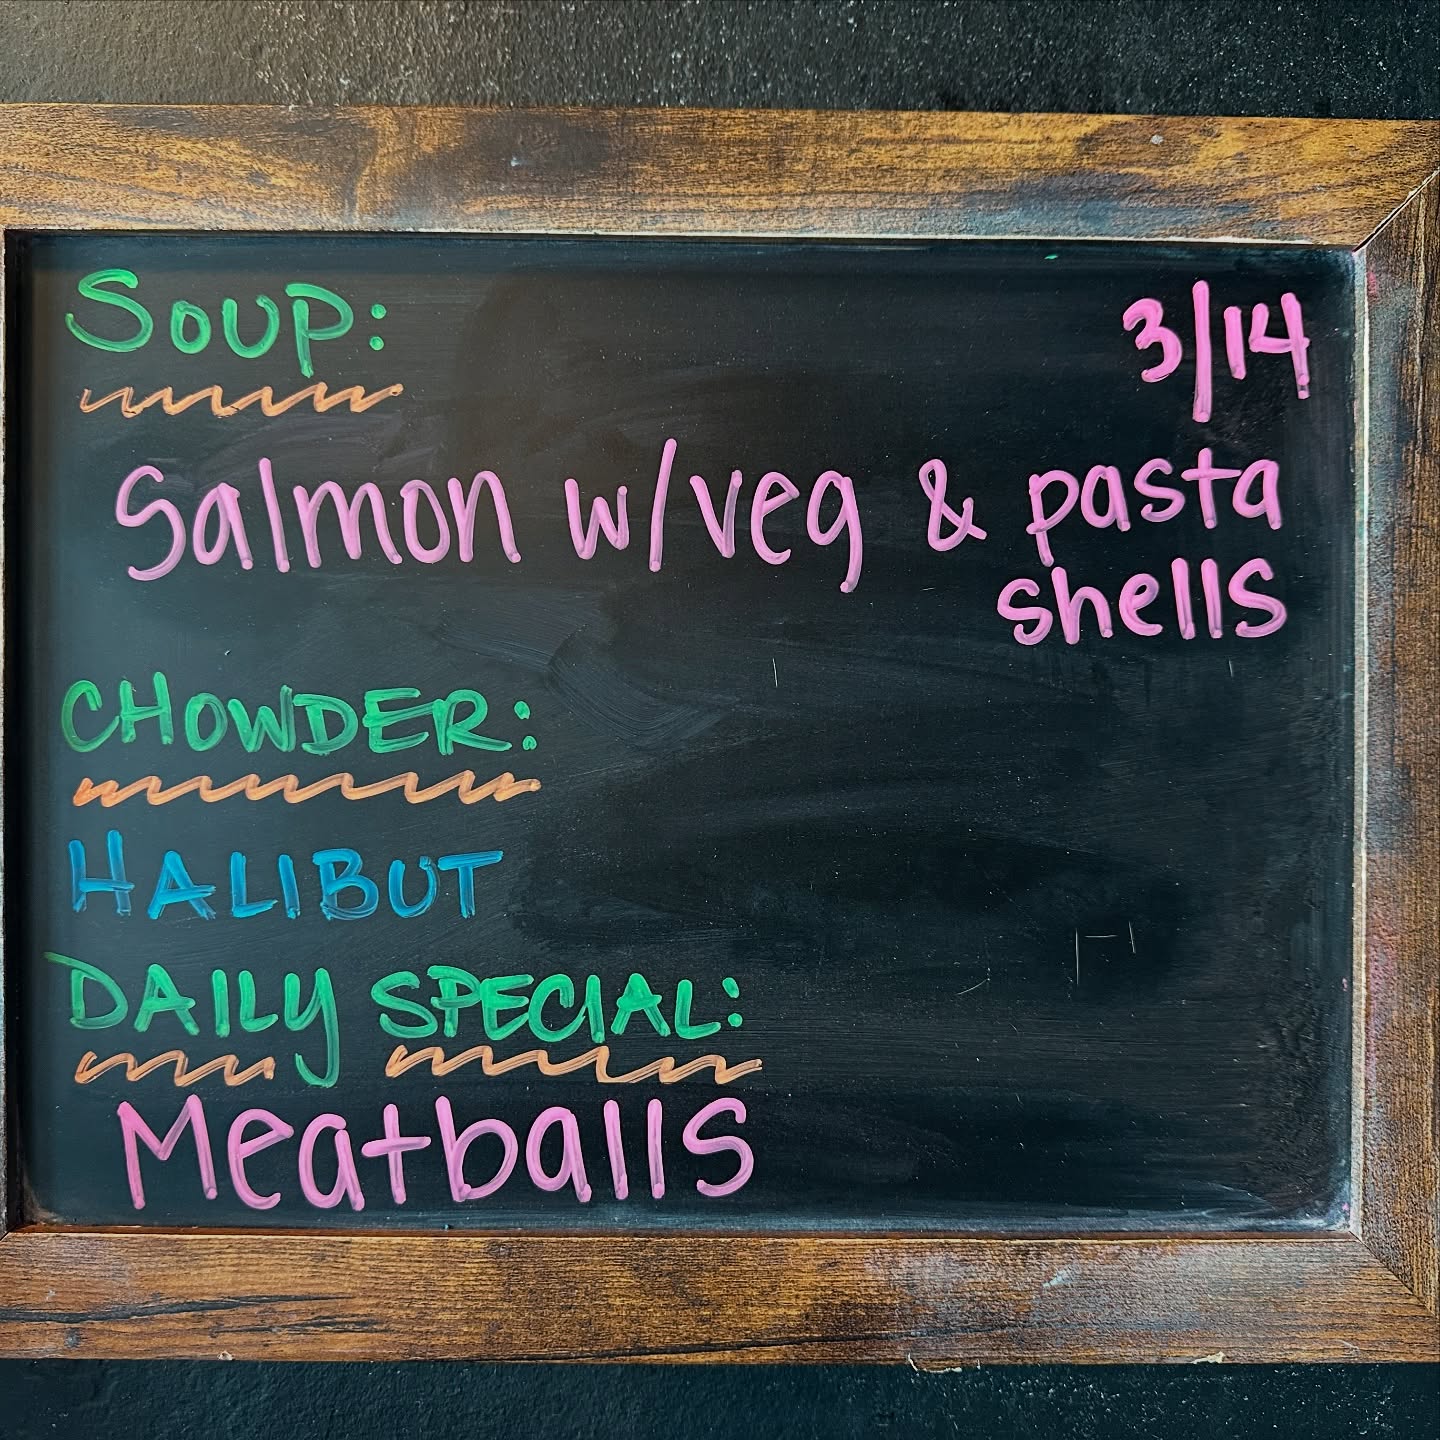 Soup:
3/14
Salmon w/veg & pasta
shells
CHOWDER:
HALIBUT
DAILY SPECIAL:
Meatballs